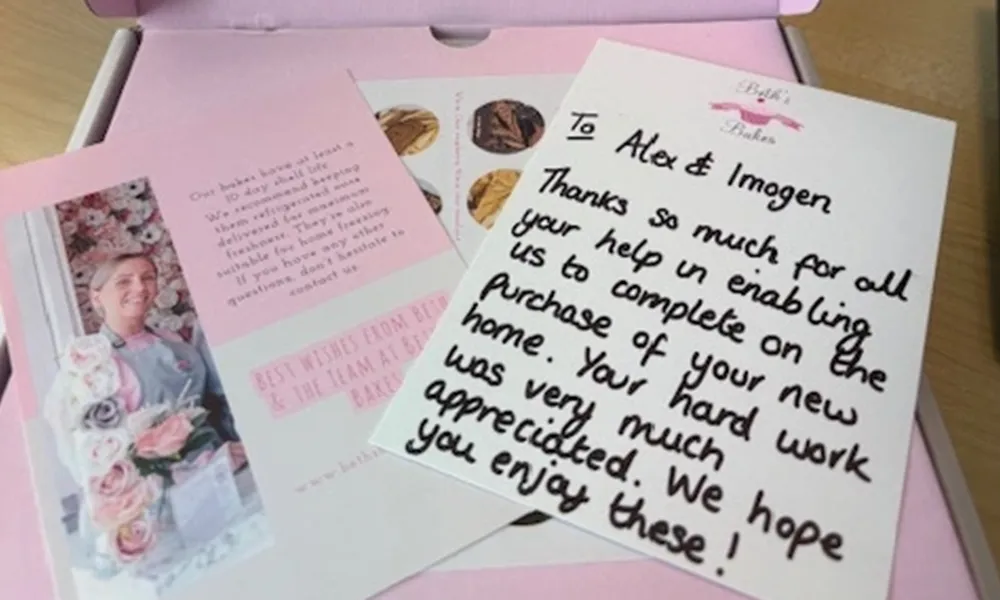 Our bakes have at least a
10 day shelf life
We recommend keeping
them refrigerated once
delivered for maximum
freshness. They're also
suitable for home freezing.
If you have any other
questions, don't hesitate to
contact us.
BEST WISHES FROM
& THE TEAM AT
www.
Beth's
Bakes
To Alex & Imogen
Thanks so much for all
your help in enabling
us to complete on the
purchase of your new
home. Your hard work
was very much
appreciated. We hope
you enjoy these!